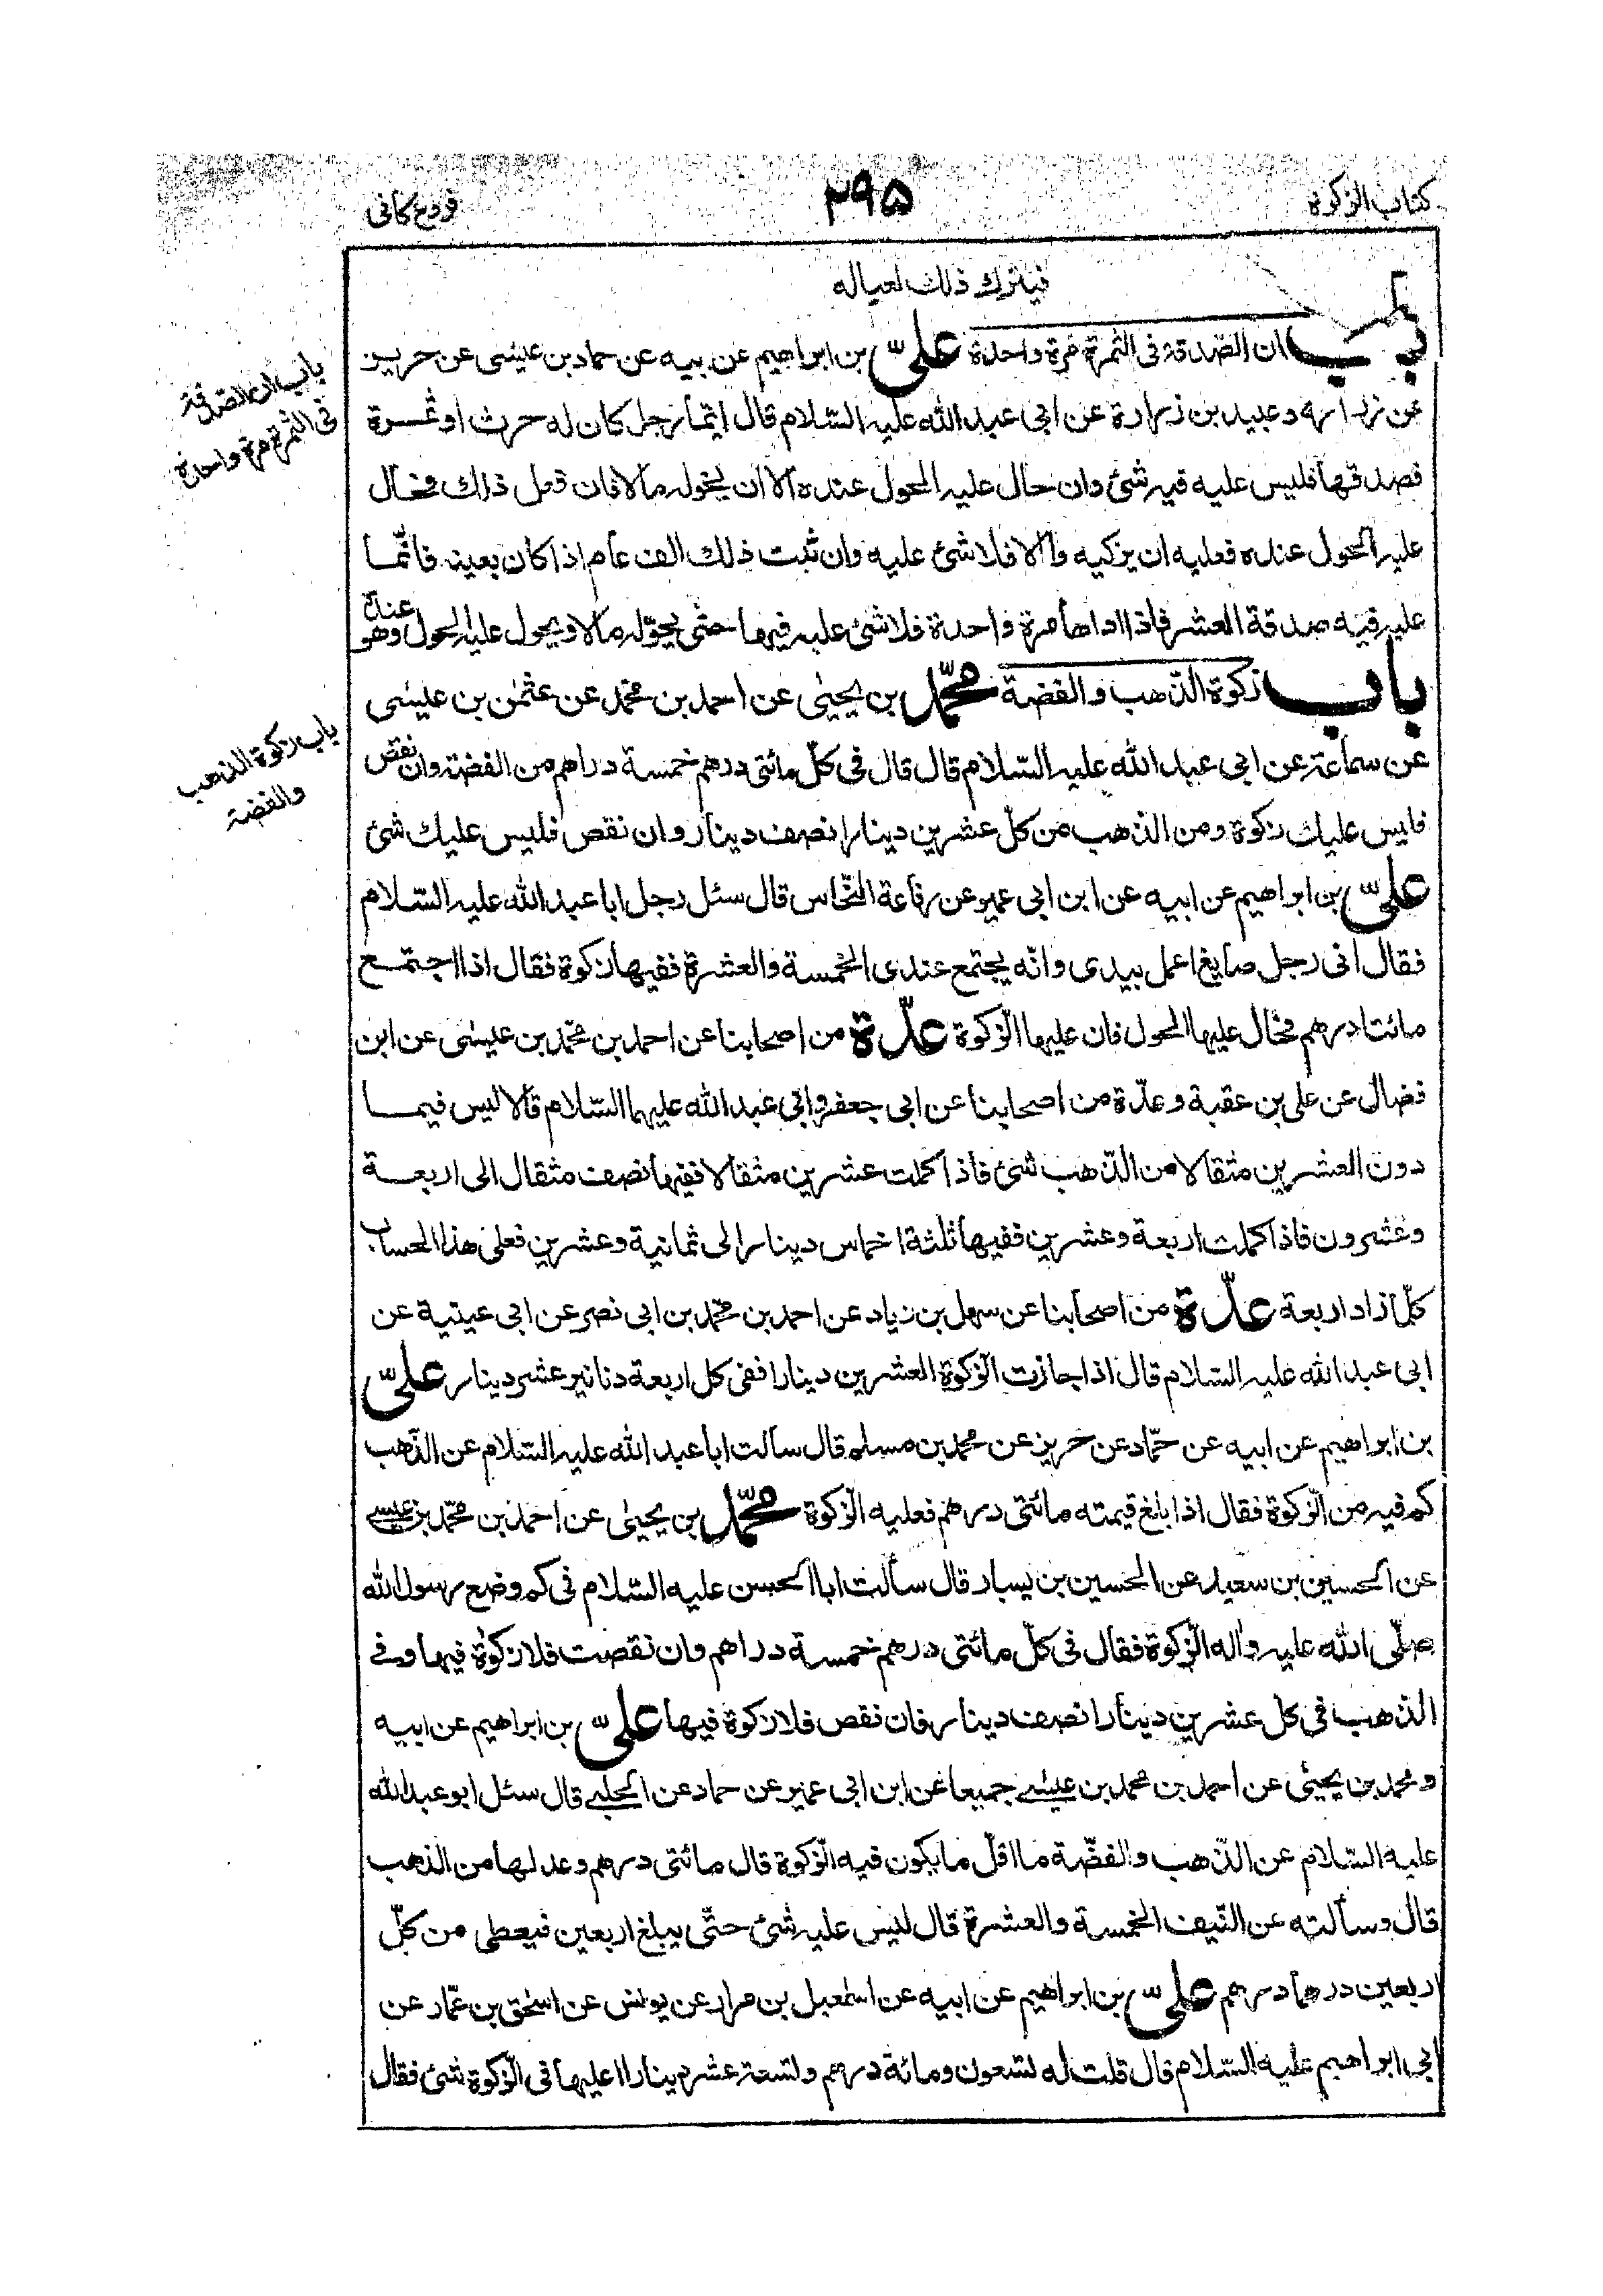 كتاب الزكوة
٢٩٥
فروع كافى
فيترك ذلك لعياله
باب ان الصّدقة فى الثمرة مرة واحدة علىّ بن ابراهيم عن ابيه عن حماد بن عيسى عن حريز
عن زرارة وعبيد بن زرارة عن ابى عبد الله عليه السّلام قال ايّما رجل كان له حرث او ثمرة
فصدقها فليس عليه فيه شئ وان حال عليه الحول عنده الا ان يحوله مالا فان فعل ذلك فحال
عليه الحول عنده فعليه ان يزكيه والا فلا شئ عليه وان ثبت ذلك الف عام اذا كان بعينه فانّما
عليه فيه صدقة العشر فاذا اداها مرة واحدة فلا شئ عليه فيها حتّى يحوّله مالا ويحول عليه الحول وهو عنده
باب زكوة الذّهب والفضة محمّد بن يحيى عن احمد بن محمّد عن عثمن بن عيسى
عن سماعة عن ابى عبد الله عليه السّلام قال قال فى كلّ مائتى درهم خمسة دراهم من الفضة وان نقص
فليس عليك زكوة ومن الذّهب من كلّ عشرين دينارا نصف دينار وان نقص فليس عليك شئ
علىّ بن ابراهيم عن ابيه عن ابن ابى عمير عن رفاعة النّخاس قال سئل رجل ابا عبد الله عليه السّلام
فقال انى رجل صايغ اعمل بيدى وانّه يجتمع عندى الخمسة والعشرة ففيها زكوة فقال اذا اجتمع
مائتا درهم فحال عليها الحول فان عليها الزّكوة عدّة من اصحابنا عن احمد بن محمّد بن عيسى عن ابن
فضال عن على بن عقبة وعدّة من اصحابنا عن ابى جعفر وابى عبد الله عليهما السّلام قالا ليس فيما
دون العشرين مثقالا من الذّهب شئ فاذا كملت عشرين مثقالا ففيها نصف مثقال الى اربعة
وعشرون فاذا كملت اربعة وعشرين ففيها ثلثة اخماس دينار الى ثمانية وعشرين فعلى هذا الحساب
كلّما زاد اربعة عدّة من اصحابنا عن سهل بن زياد عن احمد بن محمّد بن ابى نصر عن ابى عيينة عن
ابى عبد الله عليه السّلام قال اذا جازت الزّكوة العشرين دينارا ففى كل اربعة دنانير عشر دينار علىّ
بن ابراهيم عن ابيه عن حمّاد عن حريز عن محمد بن مسلم قال سألت ابا عبد الله عليه السّلام عن الذّهب
كم فيه من الزّكوة فقال اذا بلغ قيمته مائتى درهم فعليه الزّكوة محمّد بن يحيى عن احمد بن محمّد بن عيسى
عن الحسين بن سعيد عن الحسين بن يسار قال سألت ابا الحسن عليه السّلام فى كم وضع رسول الله
صلّى الله عليه واله الزّكوة فقال فى كلّ مائتى درهم خمسة دراهم وان نقصت فلا زكوة فيها وفى
الذّهب فى كل عشرين دينارا نصف دينار فان نقص فلا زكوة فيها علىّ بن ابراهيم عن ابيه
ومحمد بن يحيى عن احمد بن محمد بن عيسى جميعا عن ابن ابى عمير عن حماد عن الحلبى قال سئل ابو عبد الله
عليه السّلام عن الذّهب والفضّة ما اقلّ ما يكون فيه الزّكوة قال مائتى درهم وعدلها من الذهب
قال وسألته عن النّيف الخمسة والعشرة قال ليس عليه شئ حتّى يبلغ اربعين فيعطى من كلّ
اربعين درهما درهم علىّ بن ابراهيم عن ابيه عن اسمعيل بن مرار عن يونس عن اسحق بن عمّار عن
ابى ابراهيم عليه السّلام قال قلت له تسعون ومائة درهم وتسعة عشر دينارا اعليها فى الزّكوة شئ فقال
باب ان الصدقة
فى الثمرة مرة واحدة
باب زكوة الذهب
والفضة